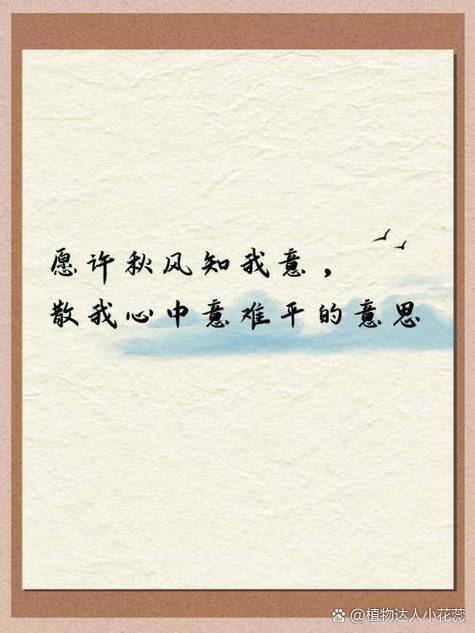 愿许秋风知我意，
散我心中意难平的意思
@植物达人小花蕊